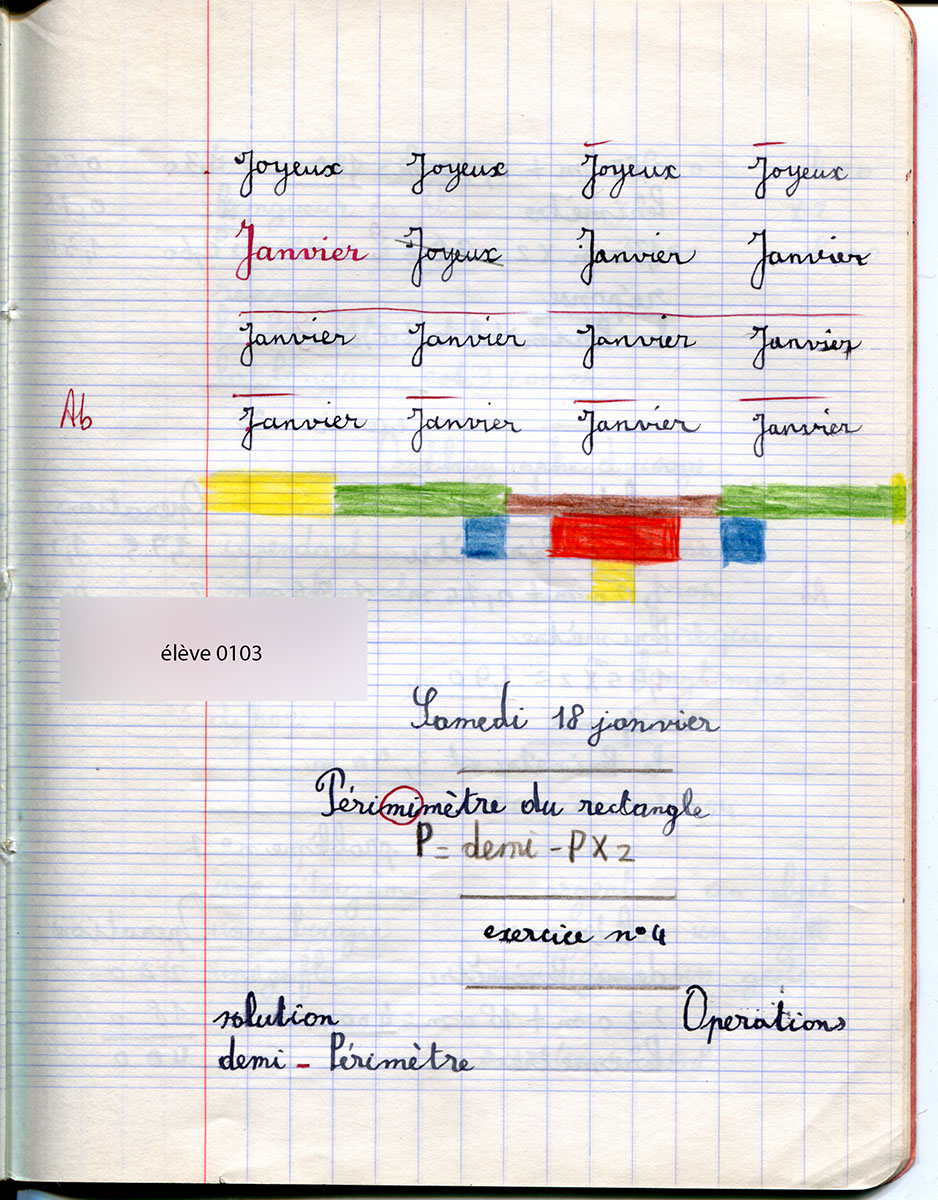 Joyeux Joyeux Joyeux Joyeux
Janvier Joyeux Janvier Janvier
Janvier Janvier Janvier Janvier
Ab Janvier Janvier Janvier Janvier
élève 0103
Samedi 18 janvier
Périmimètre du rectangle
P = demi - P x 2
exercice n° 4
solution Operations
demi - Périmètre